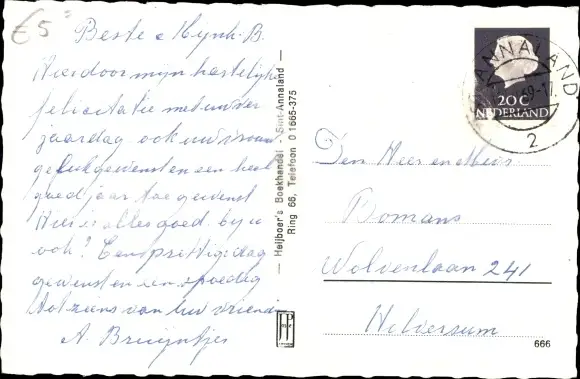 €5
Beste Mynh. B.
Hierdoor mijn hartelijke
felicitatie met uw ver
jaardag ook uw vrouw
geluk gewenst en een heel
goed jaar toe gewenst
Hier is alles goed. by u
ook? Een prettige dag
gewenst en een spoedig
tot ziens van uw vriendin
A. Bruijntjes
— Heijboer's Boekhandel - Sint-Annaland —
Ring 66, Telefoon 01665-375
20 C
NEDERLAND
ANNALAND
69-17
2
Den Heer en Mevr.
Bomans
Wolvenlaan 241
Hilversum
666